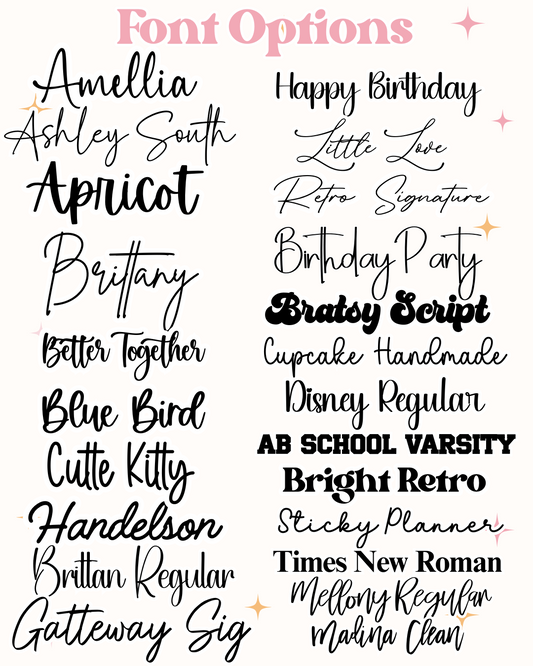 Font Options
Amellia
Ashley South
Apricot
Brittany
Better Together
Blue Bird
Cutte Kitty
Handelson
Brittan Regular
Gatteway Sig
Happy Birthday
Little Love
Retro Signature
Birthday Party
Bratsy Script
Cupcake Handmade
Disney Regular
AB SCHOOL VARSITY
Bright Retro
Sticky Planner
Times New Roman
Mellony Regular
Madina Clean